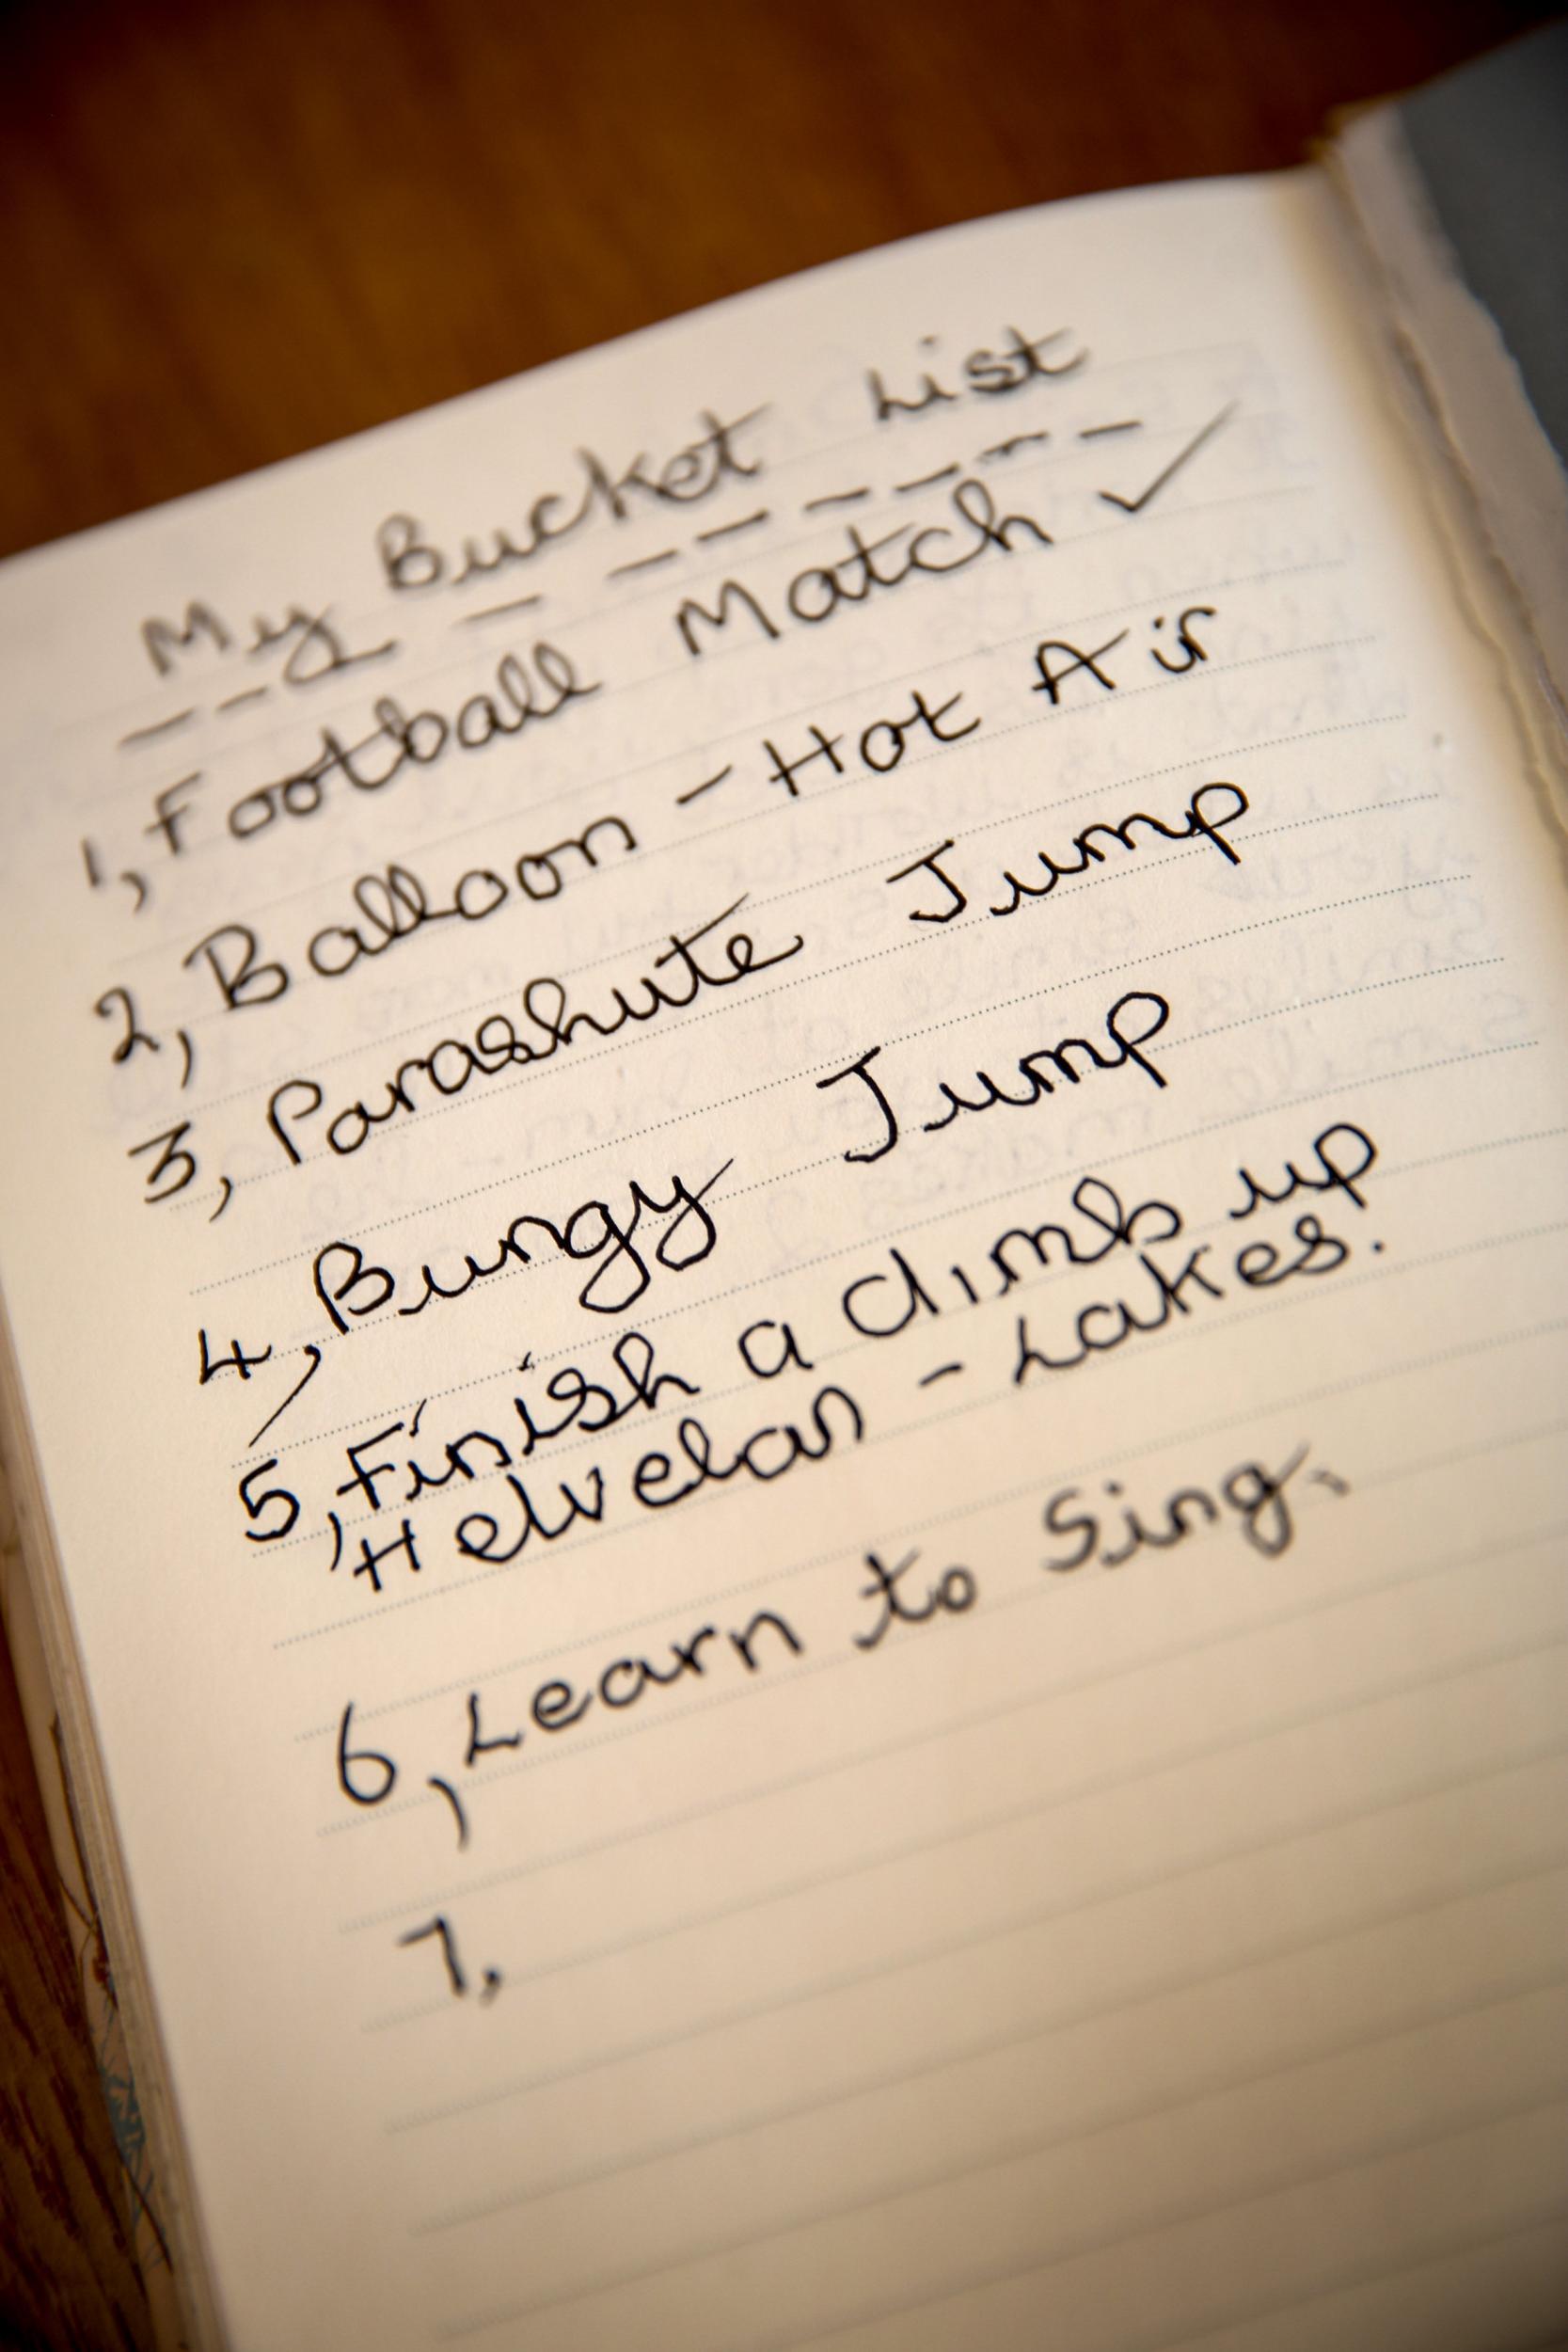 My Bucket List
1, Football Match ✓
2, Balloon - Hot Air
3, Parashute Jump
4, Bungy Jump
5, Finish a climb up
Helvelan - Lakes.
6, Learn to Sing.
7.